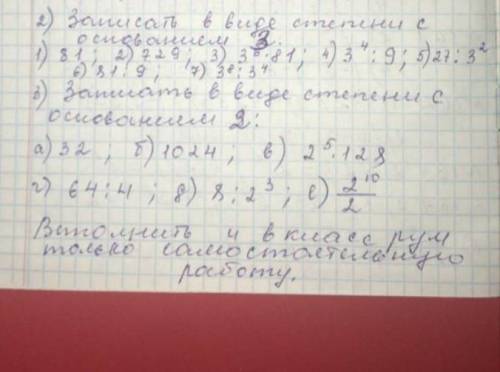 2) Записать в виде степени с
основанием 3.
1) 81; 2) 729; 3) 3⁵·81; 4) 3⁴:9; 5) 27:3²
6) 81:9; 7) 3⁸:3⁴
3) Записать в виде степени с
основанием 2:
а) 32; б) 1024; в) 2⁵·128
г) 64:4; д) 8:2³; е) 2¹⁰/2
Выполнить и в класс рум
только самостоятельную
работу.